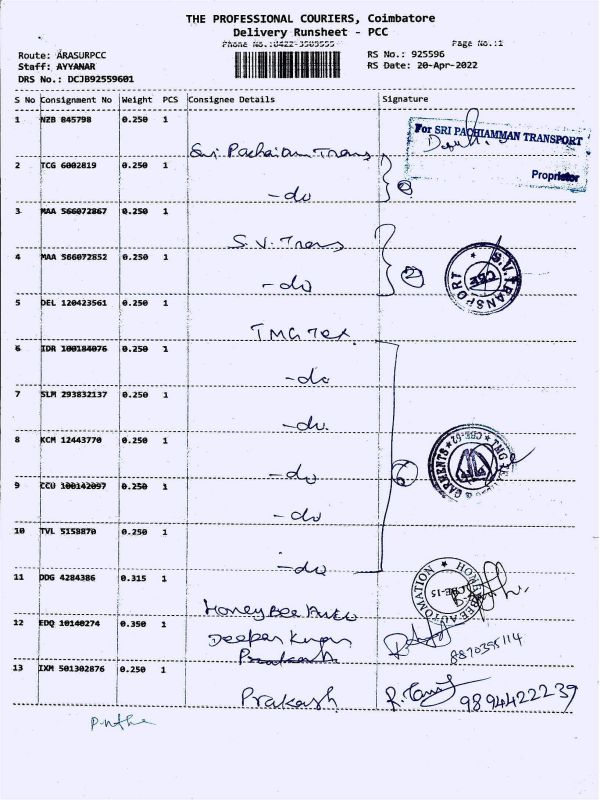 THE PROFESSIONAL COURIERS, Coimbatore
Delivery Runsheet - PCC
Phone No.:0422-3505555 Page No.:1
Route: ARASURPCC RS No.: 925596
Staff: AYYANAR RS Date: 20-Apr-2022
DRS No.: DCJB92559601
S No Consignment No Weight PCS Consignee Details Signature
1 NZB 845798 0.250 1
Sri Pachaiam Trans
For SRI PACHIAMMAN TRANSPORT
Proprietor
2 TCG 6002819 0.250 1
-do
3 MAA 566072867 0.250 1
S.V. Trans
4 MAA 566072852 0.250 1
-do 2
S.V. TRANSPORT
CBE
5 DEL 120423561 0.250 1
TMG Tex
6 IDR 100184076 0.250 1
-do
7 SLM 293832137 0.250 1
-do
8 KCM 12443770 0.250 1
-do 6
TMG & GARMENTS CBE-62
9 CCU 100142097 0.250 1
-do
10 TVL 5158870 0.250 1
-do
11 DDG 4284386 0.315 1
HoneyBee Auto
HONEYBEE AUTOMATION
CBE-15
12 EDQ 10140274 0.350 1
Deepan Kumar
Prakash
8870395114
13 IXM 501302876 0.250 1
Prakash 9894422239